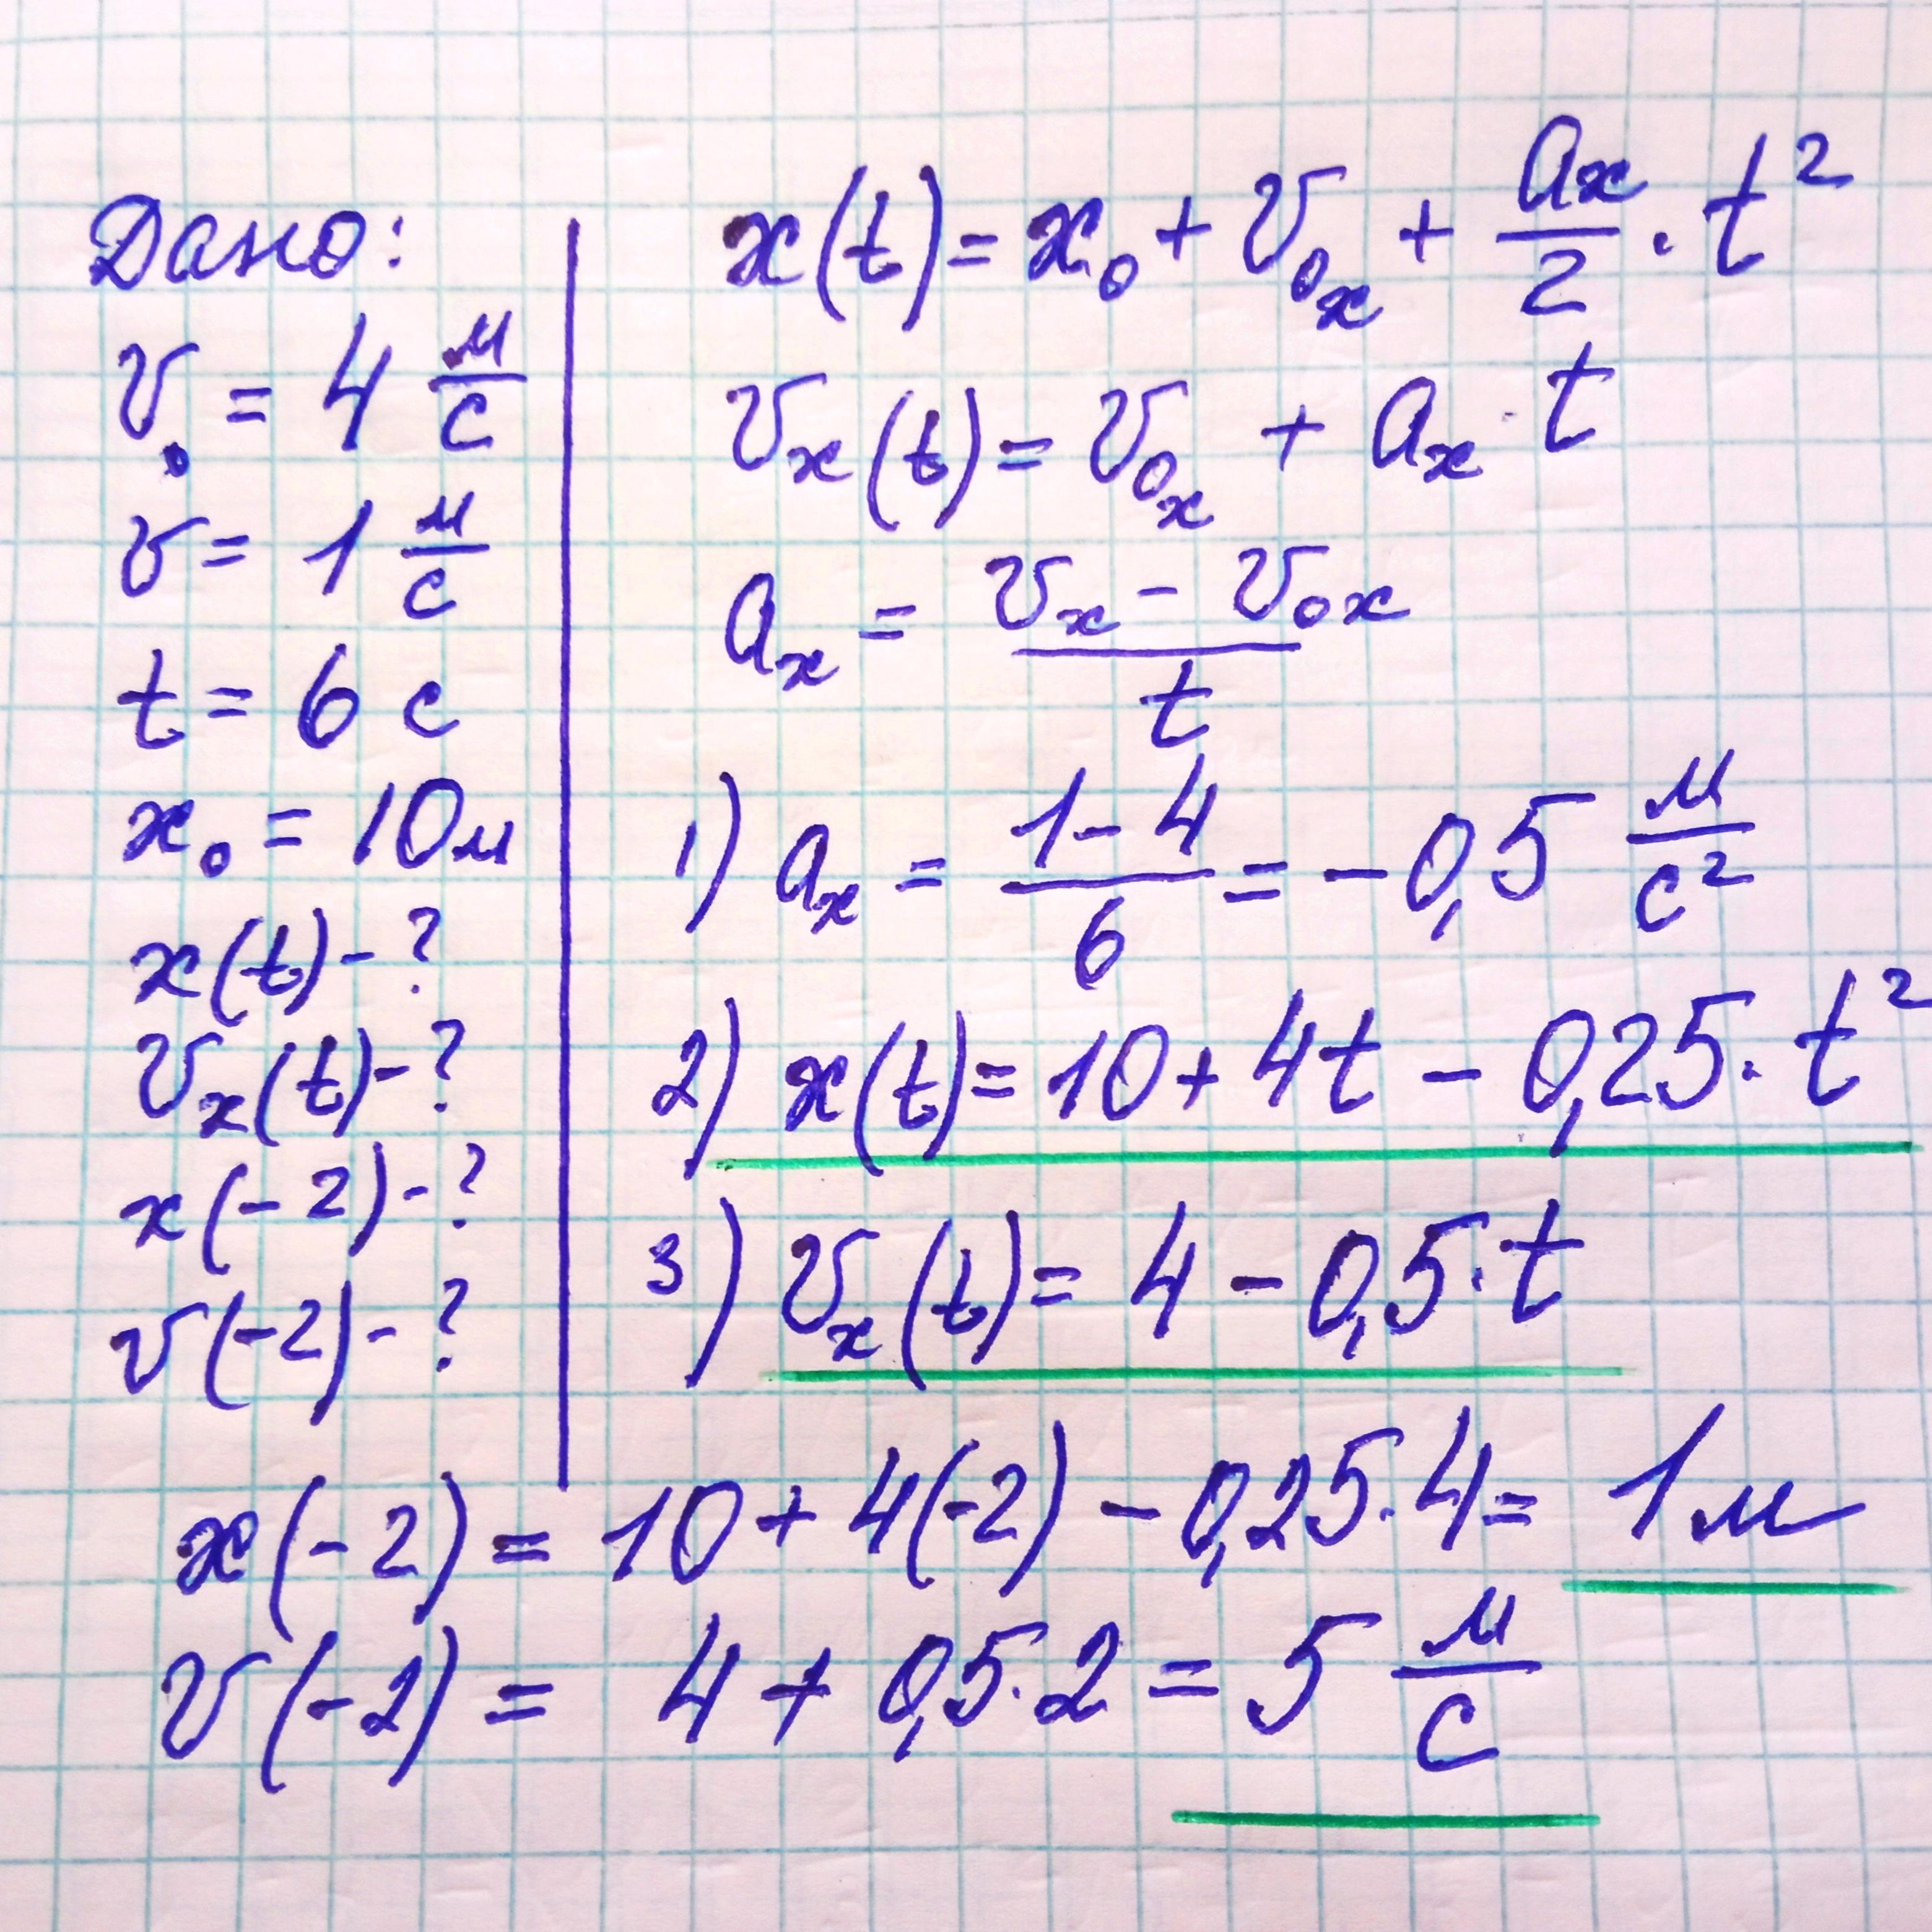 Дано:
v₀ = 4 м/с
v = 1 м/с
t = 6 с
x₀ = 10м
x(t) - ?
vₓ(t) - ?
x(-2) - ?
v(-2) - ?
x(t) = x₀ + v₀ₓ + aₓ/2 · t²
vₓ(t) = v₀ₓ + aₓ · t
aₓ = (vₓ - v₀ₓ)/t
1) aₓ = (1-4)/6 = -0,5 м/с²
2) x(t) = 10 + 4t - 0,25 · t²
3) vₓ(t) = 4 - 0,5 · t
x(-2) = 10 + 4(-2) - 0,25 · 4 = 1м
v(-2) = 4 + 0,5 · 2 = 5 м/с